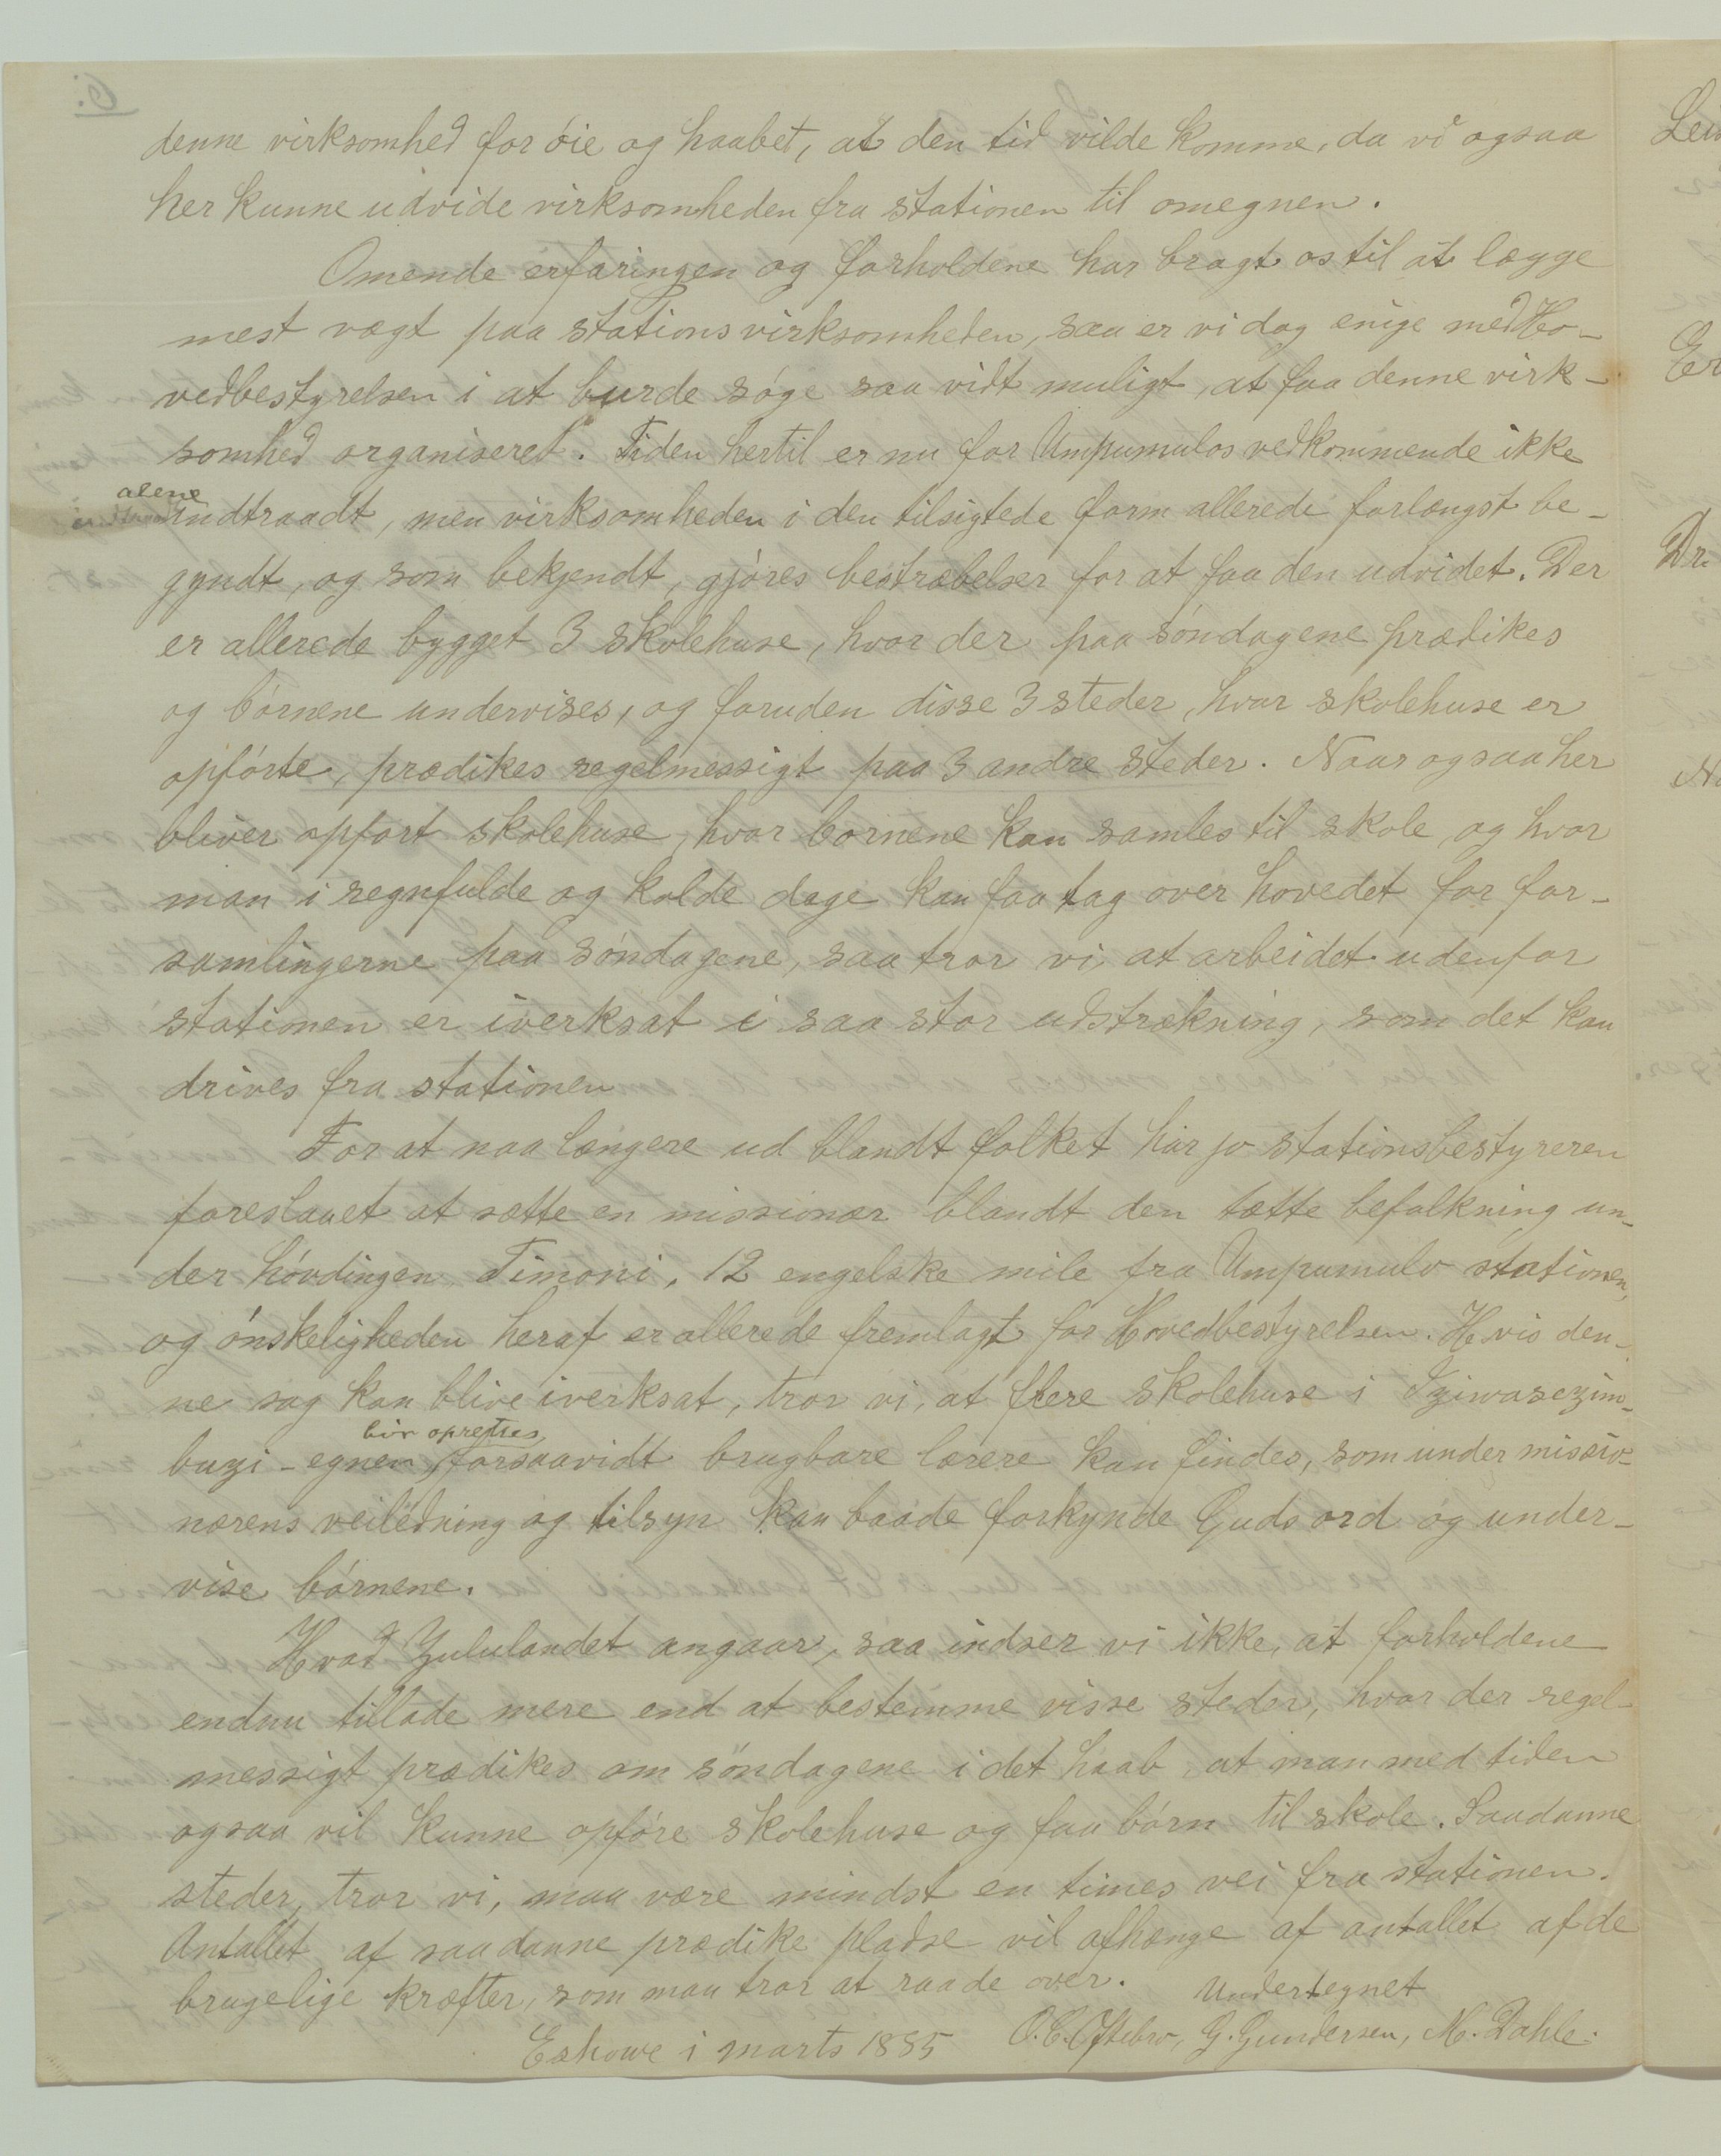 denne virksomhed for óie og haabet, at den tid vilde komme, da vi ogsaa
her kunne udvide virksomheden fra stationen til omegnen.
Omende erfaringen og forholdene har bragt os til at lægge
mest vægt paa stationsvirksomheden, saa er vi dog enige med Ho-
vedbestyrelsen i at burde søge saa vidt muligt, at faa denne virk-
somhed organiseret. Tiden hertil er nu for Umpumulos vedkommende ikke
alene
indtraadt, men virksomheden i den tilsigtede form allerede forlængst be-
gyndt, og som bekjendt, gjóres bestræbelser for at faa den udvidet. Der
er allerede bygget 3 skolehuse, hvor der paa sóndagene prædikes
og bórnene undervises, og foruden disse 3 steder, hvor skolehuse er
opfórte, prædikes regelmessigt paa 3 andre steder. Naar ogsaa her
bliver opfort skolehuse, hvor bornene kan samles til skole, og hvor
man i regnfulde og kolde dage kan faa tag over hovedet for for-
samlingerne paa sóndagene, saa tror vi, at arbeidet udenfor
stationen er iverksat i saa stor udstrækning, som det kan
drives fra stationen
For at naa længere ud blandt folket har jo stationsbestyreren
foreslaaet at sætte en missionær blandt den tætte befolkning un-
der hóvdingen Timoni, 12 engelske mile fra Umpumulo stationen,
og ónskeligheden heraf er allerede fremlagt for Hovedbestyrelsen. Hvis den-
ne sag kan blive iverksat, tror vi, at flere skolehuse i Iziwasezim-
bór oprettes
buzi-egnen, forsaavidt brugbare lærere kan findes, som under missio-
nærens veiledning og tilsyn kan baade forkynde Guds ord og under-
vise bórnene.
Hvad Zululandet angaar, saa indser vi ikke, at forholdene
endnu tillade mere end at bestemme visse steder, hvor der regel-
messigt prædikes om sóndagene i det haab, at man med tiden
ogsaa vil kunne opfóre skolehuse og faa bórn til skole. Saadanne
steder, tror vi, maa være mindst en times vei fra stationen.
Antallet af saadanne prædike pladse vil afhænge af antallet af de
brugelige kræfter, som man tror at raade over.
Undertegnet
Eshowe i marts 1885 O.C. Oftebro, G. Gundersen, M. Dahle.